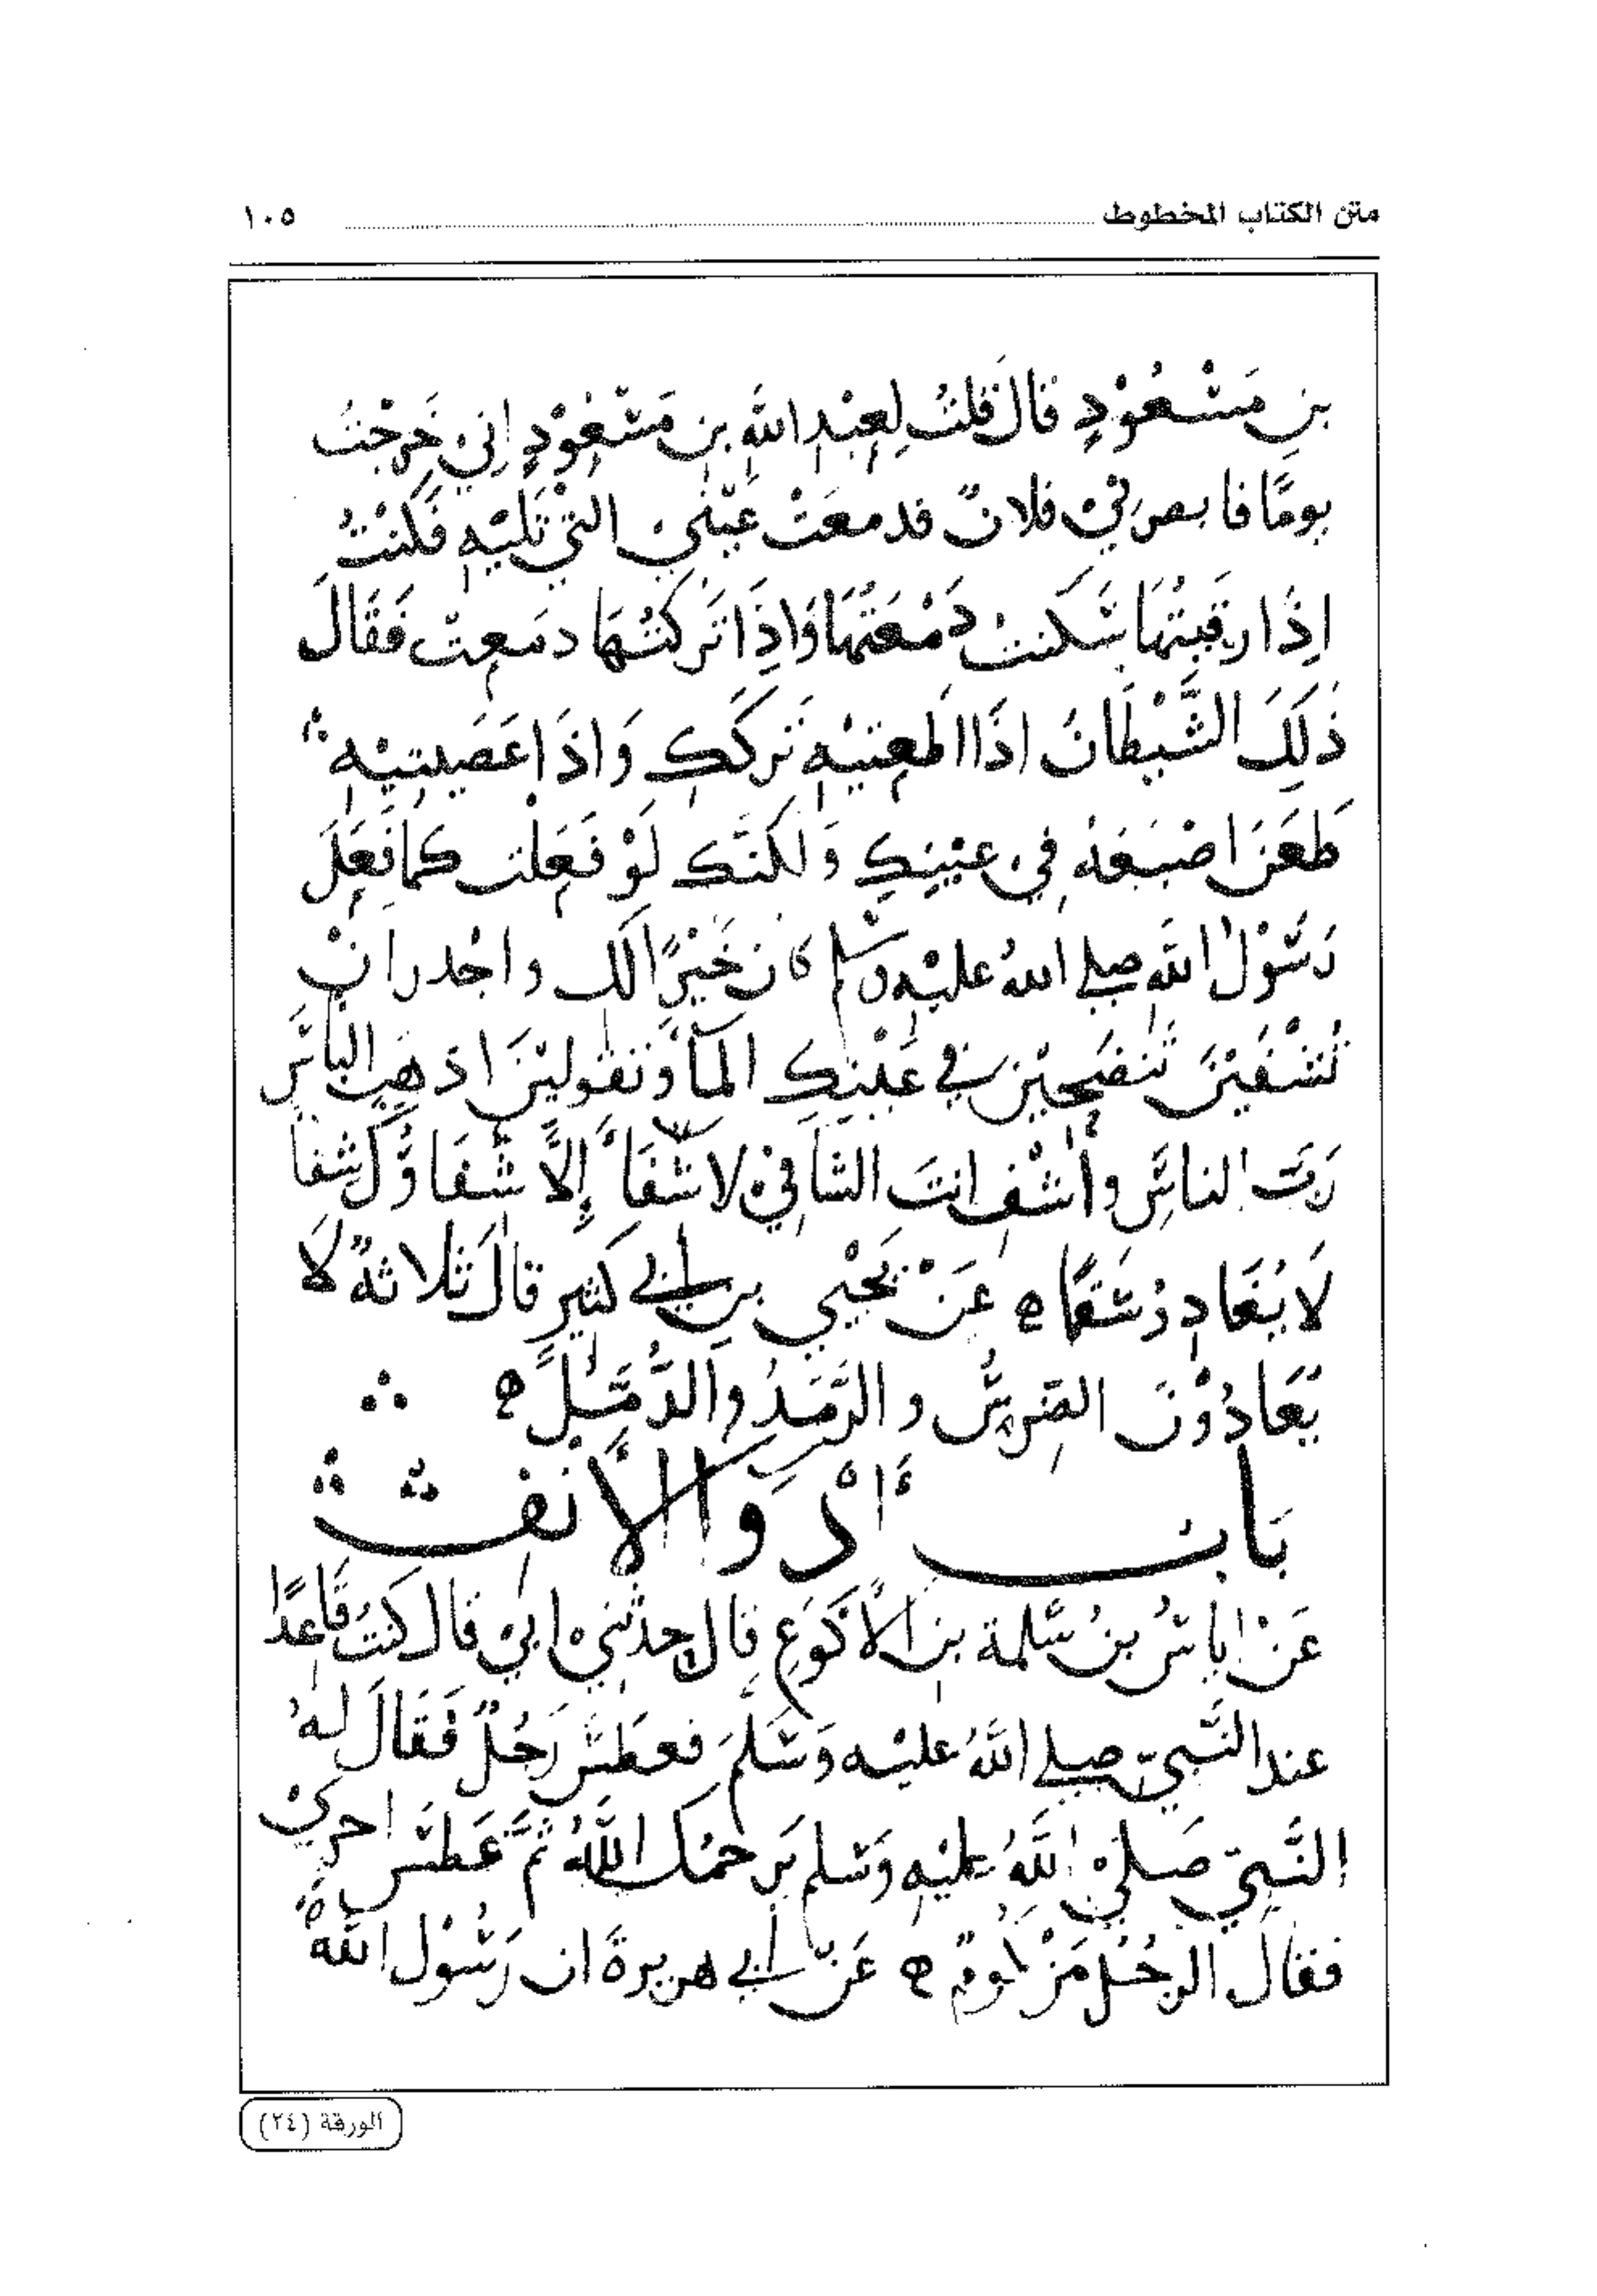 متن الكتاب المخطوط ١٠٥
بنِ مَسْعُوْدٍ قالَ قلتُ لِعبْدِ اللَّهِ بنِ مَسْعُوْدٍ اِني خَرجْتُ
يومًا فابصرَنيْ فلانٌ فدمعَتْ عَيْنيْ التيْ تَليْهِ فَكنْتُ
اِذَا رقَيتُهَا سَكنتْ دَمْعَتُهَا وَاِذَا تَركتُهَا دمَعِتْ فَقَالَ
ذَلِكَ الشَّيْطَانُ اِذَا اطعِتيْهِ تَركَكِ وَاذَا عَصَيتِيْهِ
طَعَنَ اصْبَعَهُ فِيْ عيْنِكِ وَلَكنَّكِ لَوْ فَعَلتِ كمَا فَعَلَ
رَسُوْلُ اللَّهِ صلى اللهُ عليْهِ وسْلم كانَ خَيْرًا لَكِ واجْدرانْ
تُشْفَيْنَ تَنضَحيْنَ في عَيْنِكِ المآءَ وَتقوليْنَ اذهِبِ البأسَ
رَبَّ الناسِ وأشْفِ انتَ الشافيْ لا شِفَاءَ إِلَّا شفَاؤُكَ شفا
لَا يُغَادِرُ سَقمًا ه عَنْ يَحْيي بن أبي كثيرٍ قالَ ثلاثةٌ لَا
يُعَادُوْنَ الضرسُ والرَّمَدُ والدُّمَّلُ ه
بَابُ أدْوَا الأنْف
عَنْ اياسُ بنُ سَلمة بنِ الأكوَعِ قال حدثنيْ ابيْ قال كنتُ قَاعدًا
عند النَّبيّ صلى اللَّهُ عليْه وَسَلمَ فعطَسَ رَجُلٌ فَقَالَ لهُ
النَّبيّ صَلىْ اللَّهُ عليْهِ وَسَلم يَرحمْكَ اللَّهُ ثمَّ عَطسَ اخريْ
فقالَ الرجُلُ مَزْكومٌ ه عَن أبي هريرةَ ان رَسُوْل اللهِ
الورقة (٢٤)